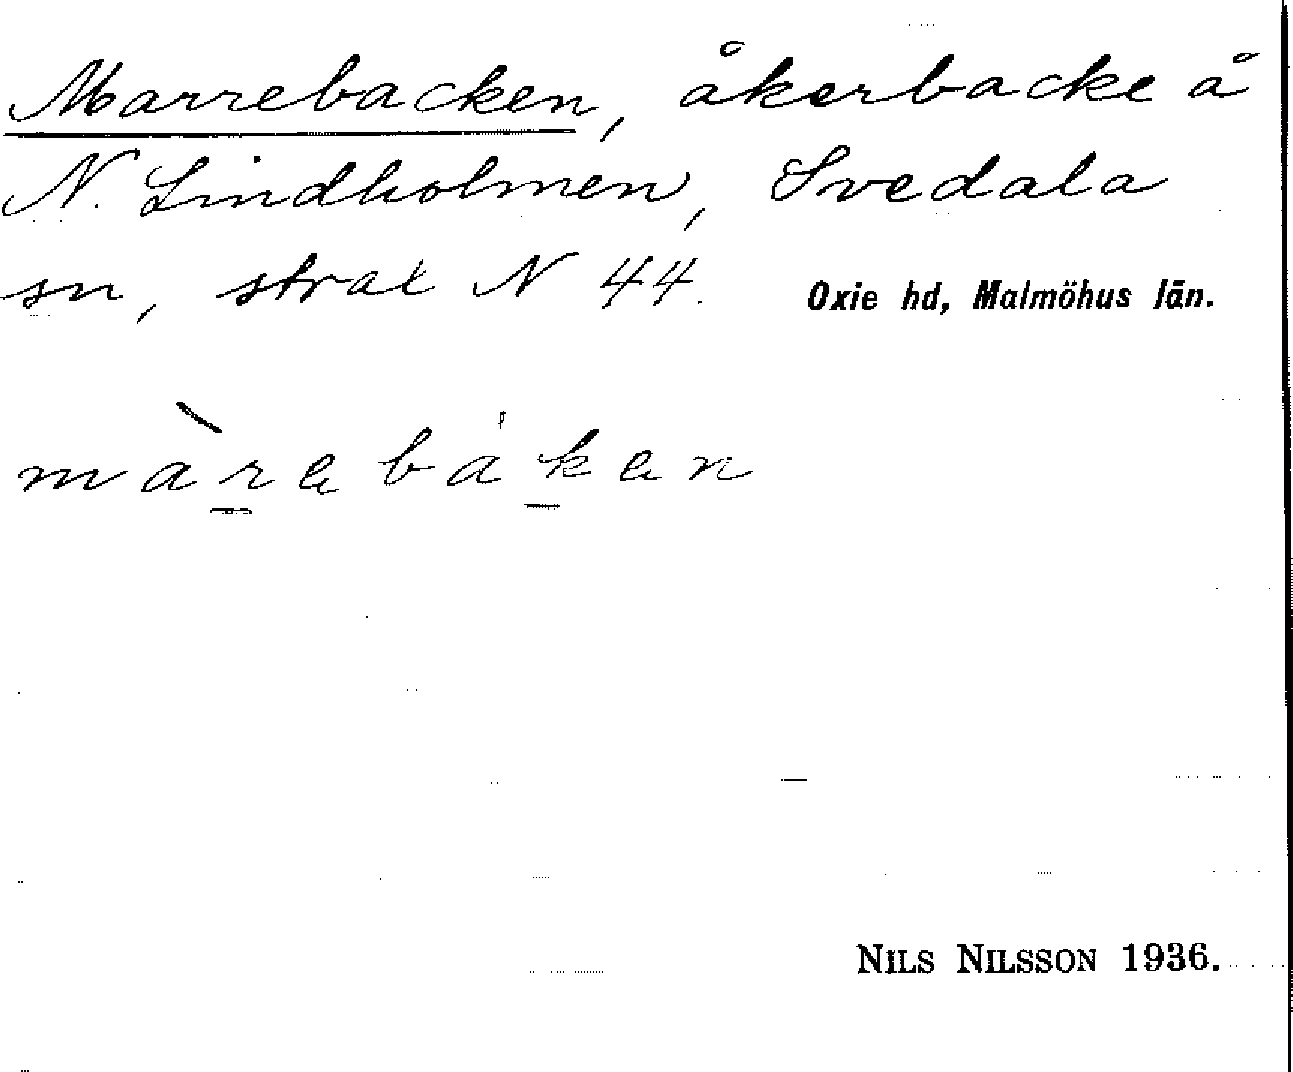 Marrebacken, åkerbacke å
N. Lindholmen, Svedala
sn, strax N 44. Oxie hd, Malmöhus län.
màrabákan
NILS NILSSON 1936.